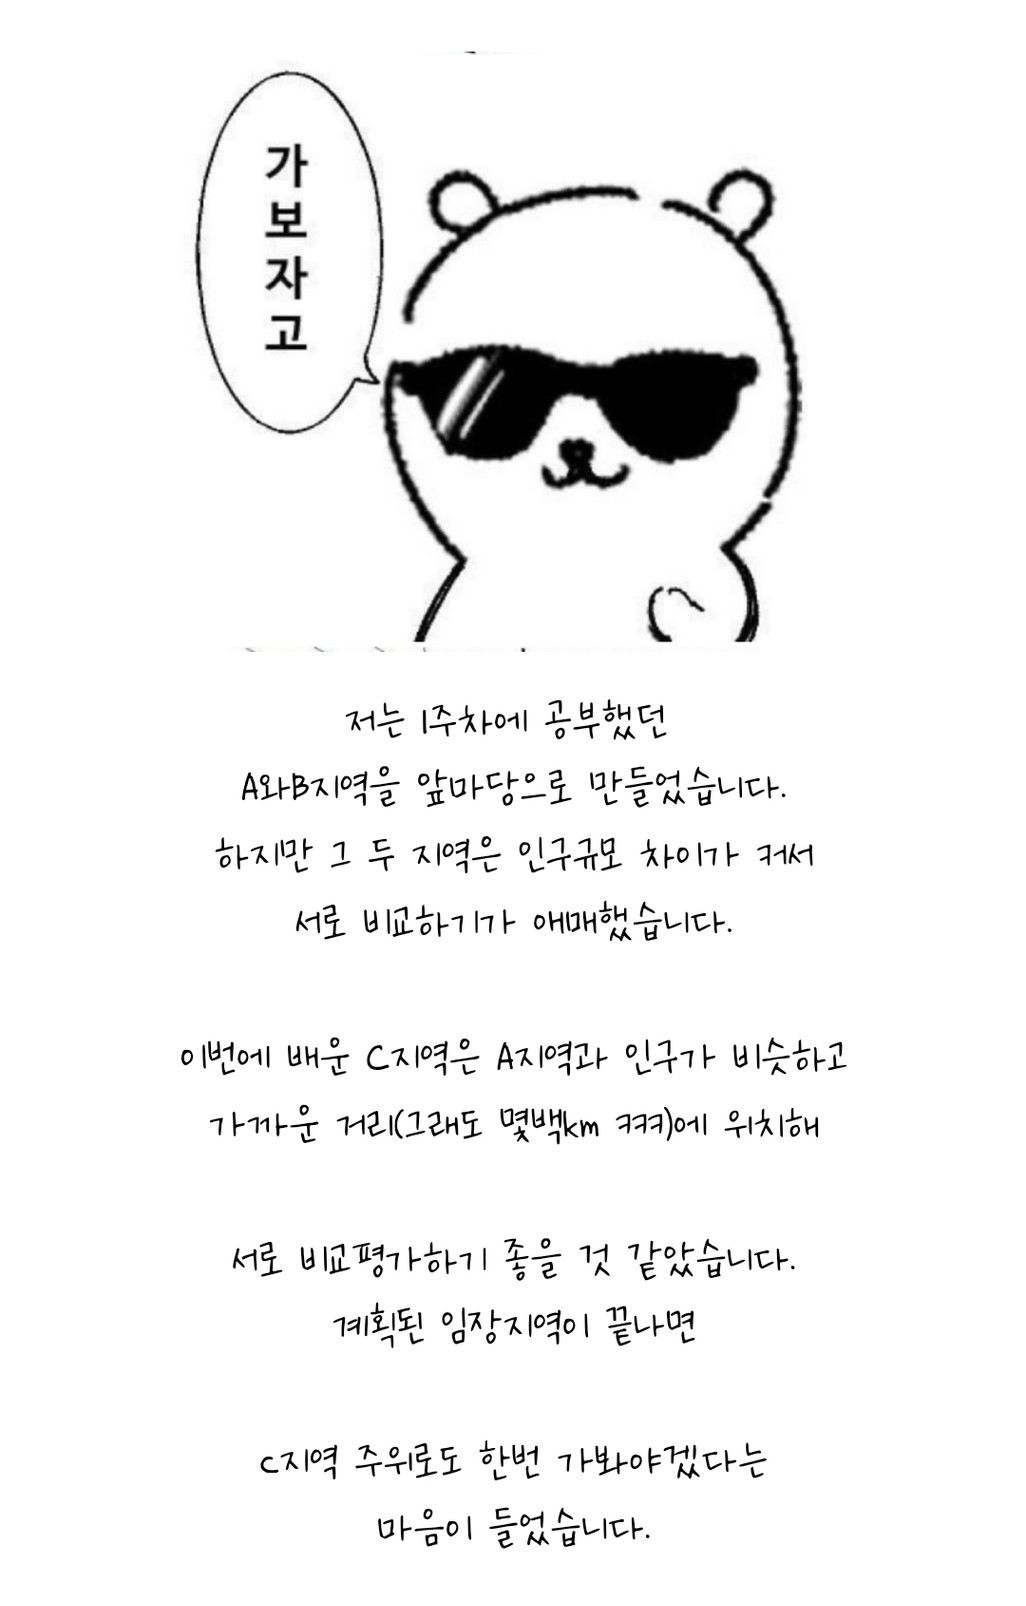 가
보
자
고
저는 1주차에 공부했던
A와B지역을 앞마당으로 만들었습니다.
하지만 그 두 지역은 인구규모 차이가 커서
서로 비교하기가 애매했습니다.
이번에 배운 C지역은 A지역과 인구가 비슷하고
가까운 거리(그래도 몇백km ㅋㅋㅋ)에 위치해
서로 비교평가하기 좋을 것 같았습니다.
계획된 임장지역이 끝나면
C지역 주위로도 한번 가봐야겠다는
마음이 들었습니다.